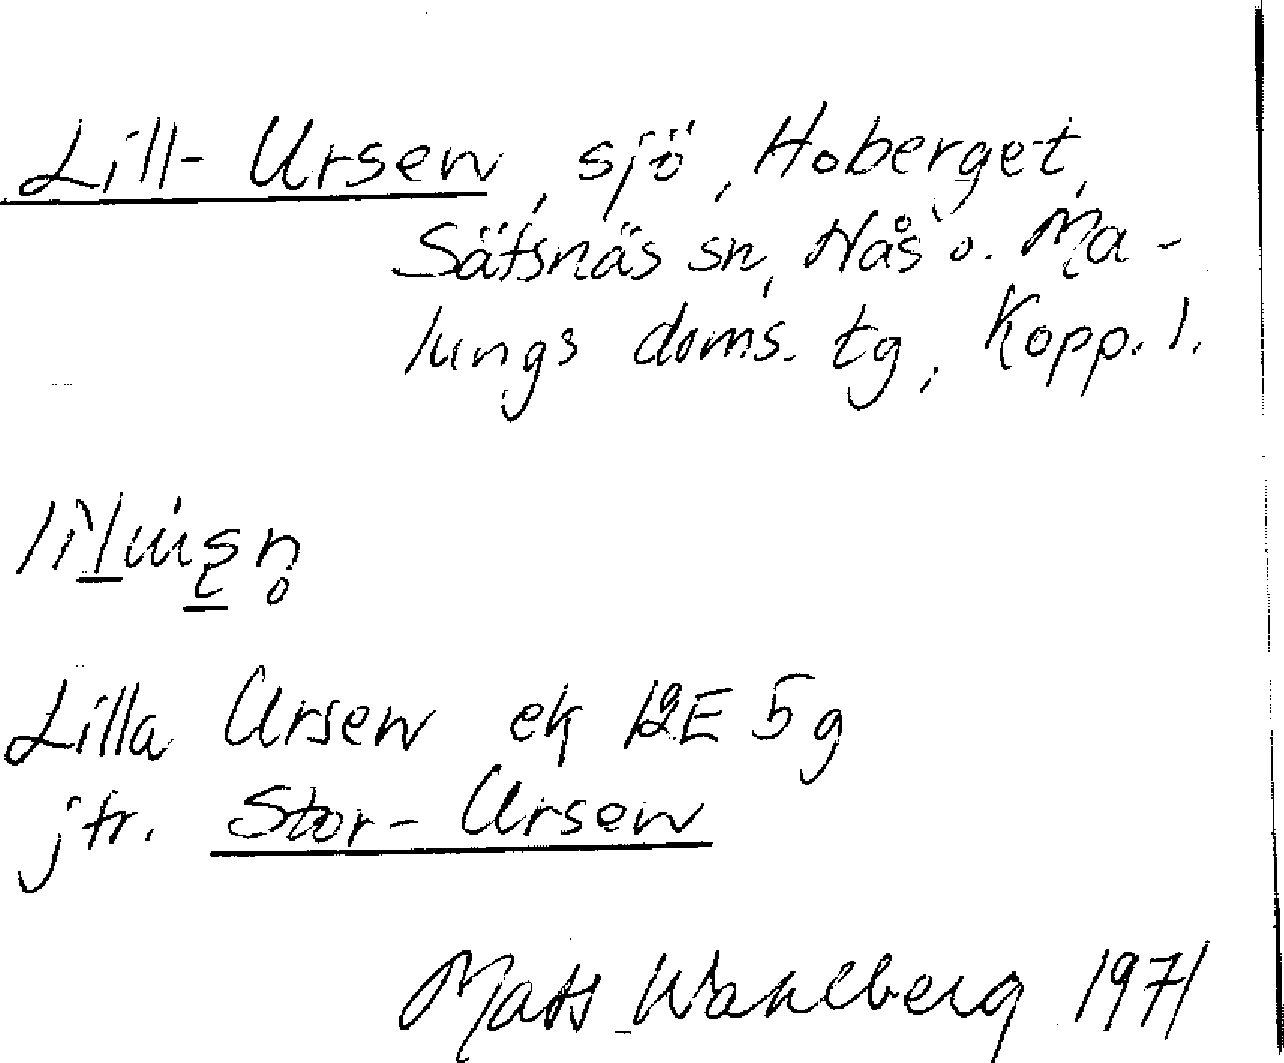 Lill-Ursen, sjö, Hoberget,
Säfsnäs sn, Nås o. Ma-
lungs doms. tg, Kopp. l.
Lilla Ursen ek 12E 5g
jfr. Stor-Ursen
Mats Wahlberg 1971